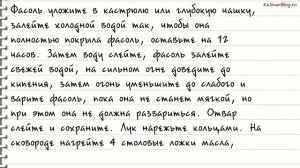 KulinarBlog.ru
Фасоль уложите в кастрюлю или глубокую чашку,
залейте холодной водой так, чтобы она
полностью покрыла фасоль, оставьте на 12
часов. Затем воду слейте, фасоль залейте
свежей водой, на сильном огне доведите до
кипения, затем огонь уменьшите до слабого и
варите фасоль, пока она не станет мягкой, но
при этом она не должна развариться. Отвар
слейте и сохраните. Лук нарежьте кольцами. На
сковороде нагрейте 4 столовые ложки масла,